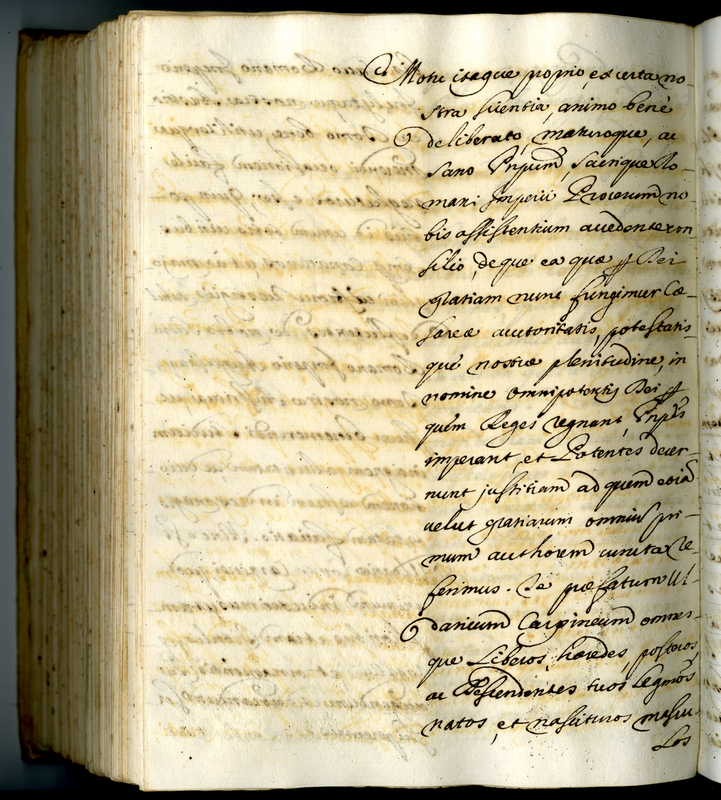 Motu itaque proprio, ex certa no-
stra scientia, animo benè
deliberato, maturoque, ac
sano Prpum, Sacrique Ro-
mani Imperii Procerum no-
bis assistentium accedente con
silio, deque ea quæ p Dei
gratiam nunc fungimur Cæ-
sareæ auctoritatis, potestatis
que nostræ plenitudine, in
nomine omnipotentis Dei p
quem Reges regnant, Prpes
imperant, et Potentes decer-
nunt justitiam ad quem etiã
velut gratiarum omniũ pri-
mum authorem cuncta re-
ferimus. Te præfatum Ul-
daricum Carpineum omnes-
que Liberos, hæredes, posteros,
ac Descendentes tuos legmõs
natos, et nascituros mascu
los